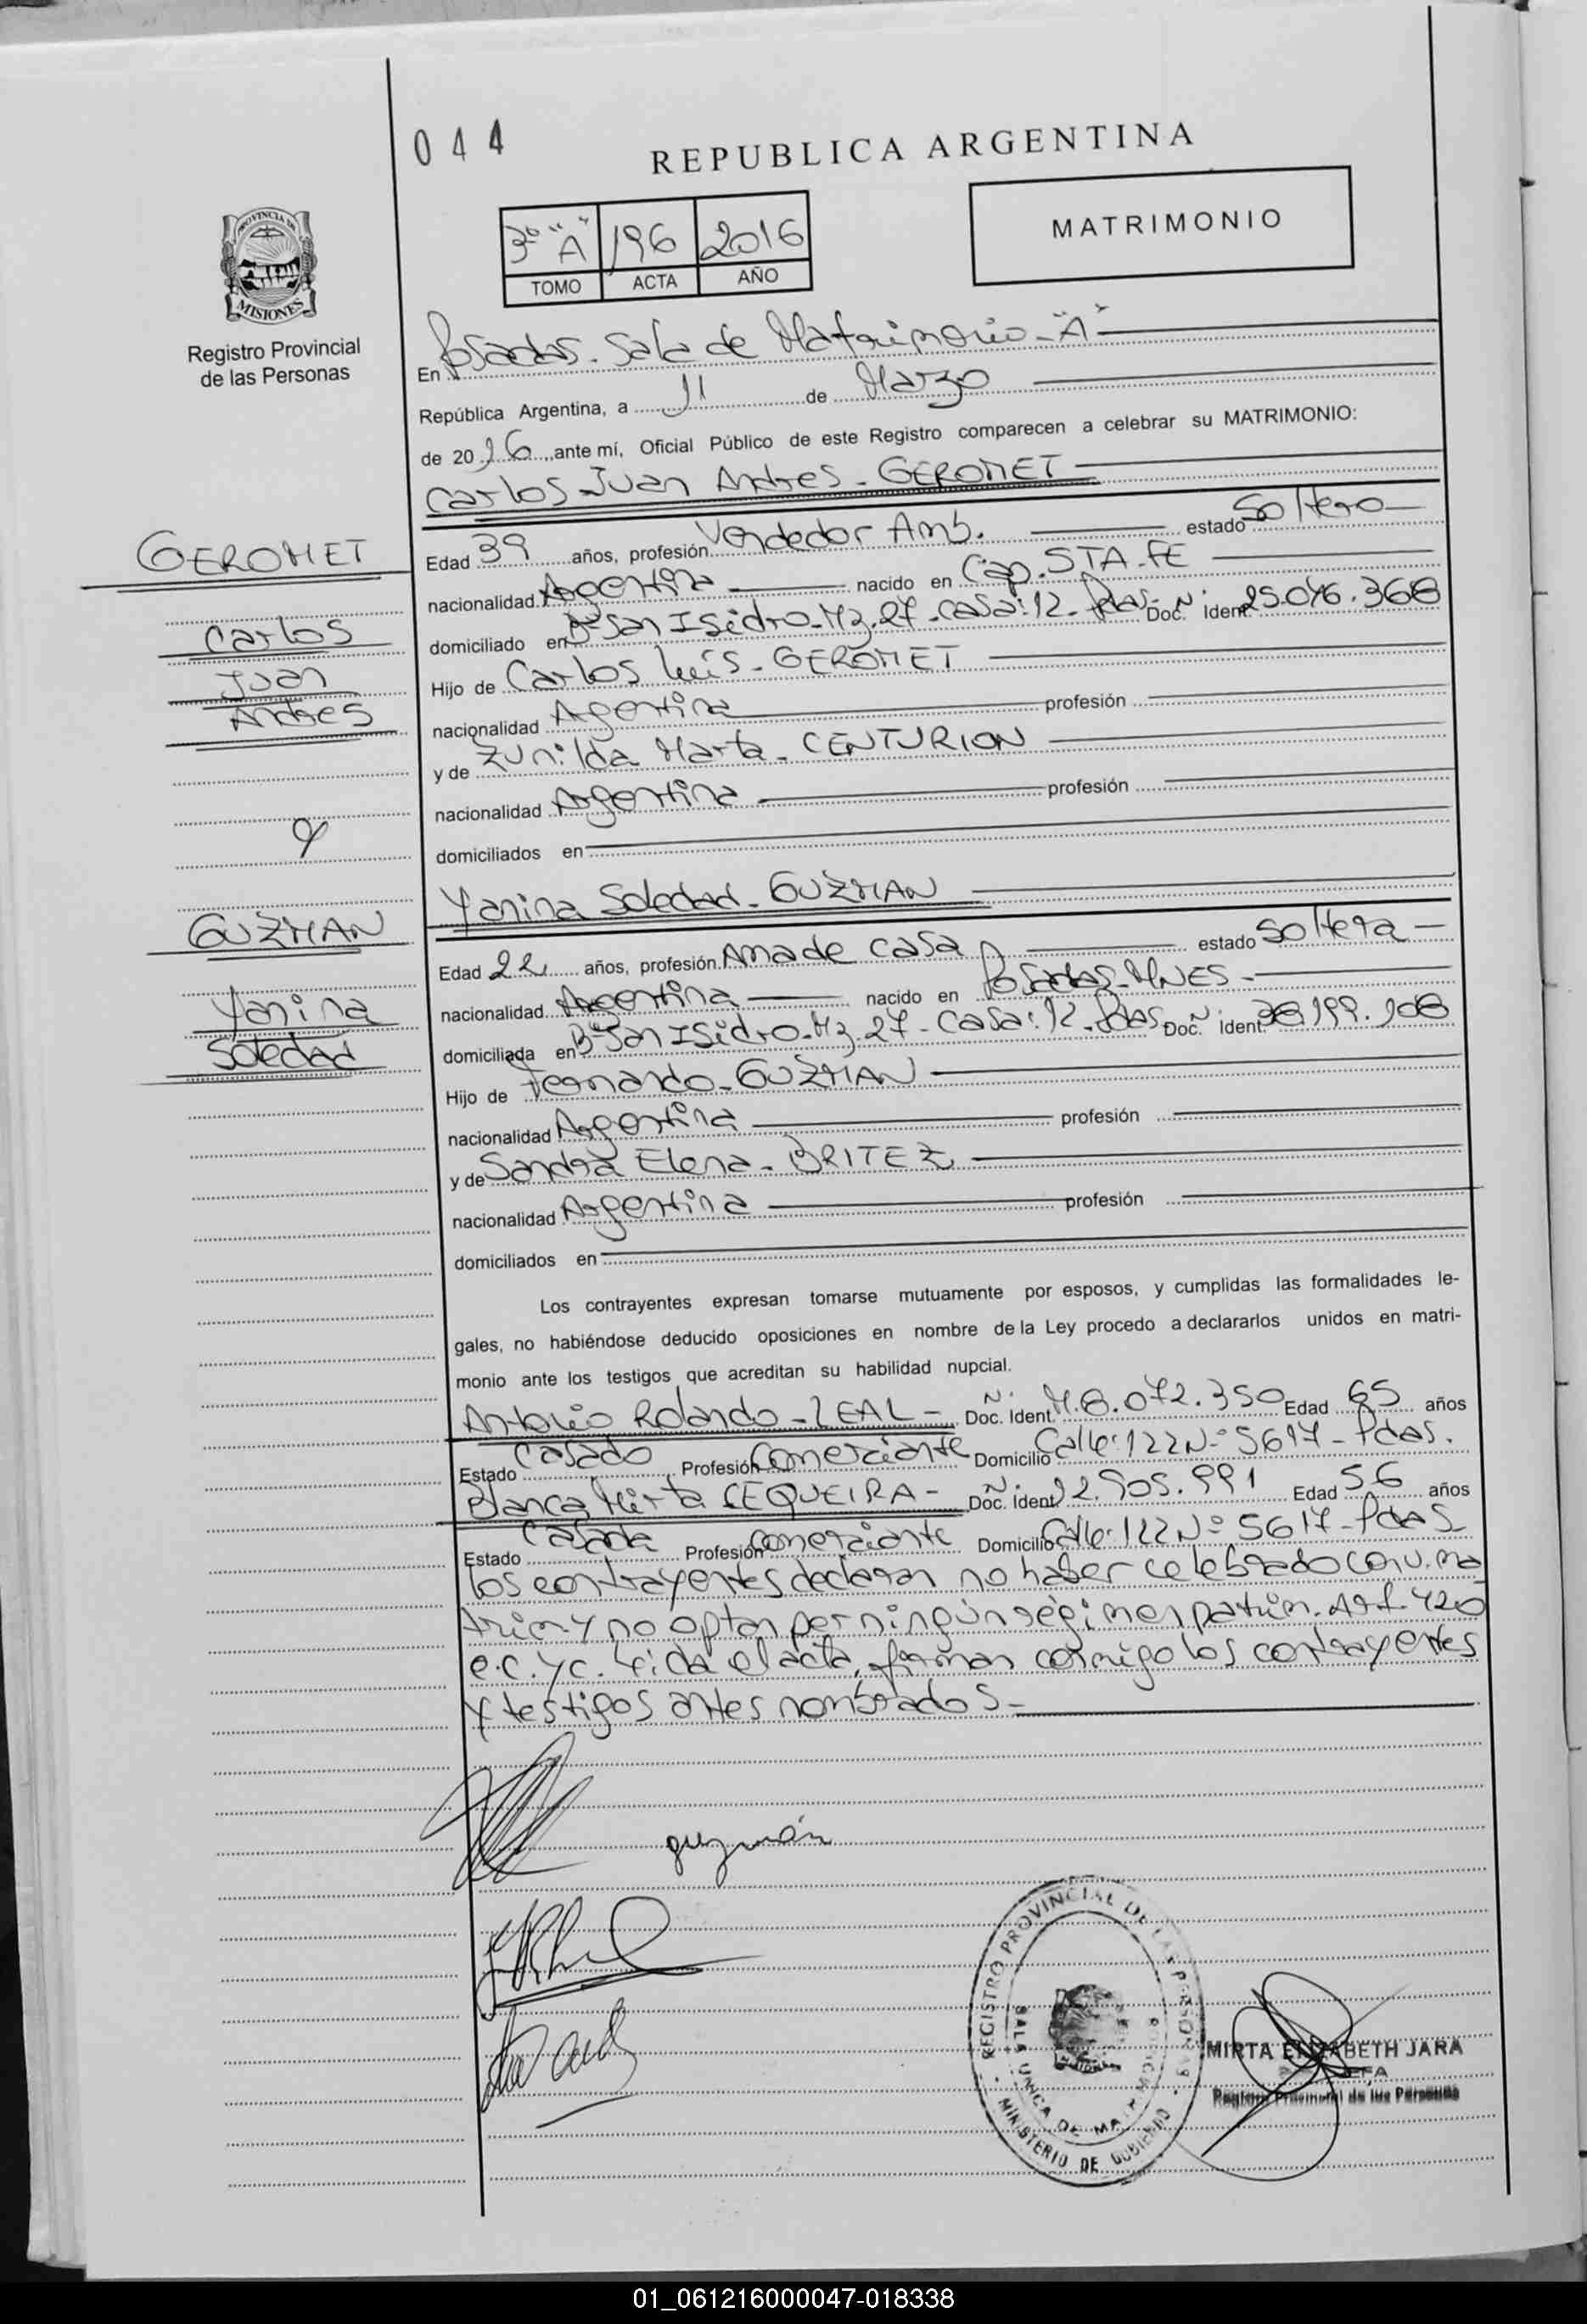 044
REPUBLICA ARGENTINA
PROVINCIA DE
MISIONES
Registro Provincial
de las Personas
3º "A" 196 2016
TOMO ACTA AÑO
MATRIMONIO
En Posadas. Sala de Matrimonio - "A"
República Argentina, a 11 de Marzo
de 2016, ante mí, Oficial Público de este Registro comparecen a celebrar su MATRIMONIO:
Carlos Juan Andres - GEROMET
GEROMET
Carlos
Juan
Andres
Edad 39 años, profesión Vendedor Amb. estado Soltero
nacionalidad Argentina nacido en Cap. STA. FE
domiciliado en Bº San Isidro - Mz. 27 - Casa: 12 - Pdas. Doc. Nº Ident. 25.046.368
Hijo de Carlos Luis - GEROMET
nacionalidad Argentina profesión
y de Zunilda Marta - CENTURION
nacionalidad Argentina profesión
domiciliados en
y
GUZMAN
Yanina
Soledad
Yanina Soledad - GUZMAN
Edad 22 años, profesión Ama de casa estado Soltera
nacionalidad Argentina nacido en Posadas - MNES -
domiciliada en Bº San Isidro - Mz. 27 - Casa: 12 - Pdas. Doc. Nº Ident. 38.199.108
Hijo de Fernando - GUZMAN
nacionalidad Argentina profesión
y de Sandra Elena - BRITEZ
nacionalidad Argentina profesión
domiciliados en
Los contrayentes expresan tomarse mutuamente por esposos, y cumplidas las formalidades le-
gales, no habiéndose deducido oposiciones en nombre de la Ley procedo a declararlos unidos en matri-
monio ante los testigos que acreditan su habilidad nupcial.
Antonio Rolando - LEAL - Doc. Nº Ident. M.8.072.350 Edad 65 años
Estado Casado Profesión Comerciante Domicilio Calle: 122 Nº 5617 - Pdas.
Blanca Mirta CEQUEIRA - Doc. Nº Ident. 12.505.991 Edad 56 años
Estado Casada Profesión Comerciante Domicilio Calle: 122 Nº 5617 - Pdas
los contrayentes declaran no haber celebrado conv. ma
trim y no optan por ningún régimen patrim. Art. 420
e.C.yC. Leida el acta, firman conmigo los contrayentes
y testigos antes nombrados -
guzmán
REGISTRO PROVINCIAL DE LAS PERSONAS
MINISTERIO DE GOBIERNO
MIRTA ELIZABETH JARA
JEFA
Registro Provincial de las Personas
01_061216000047-018338